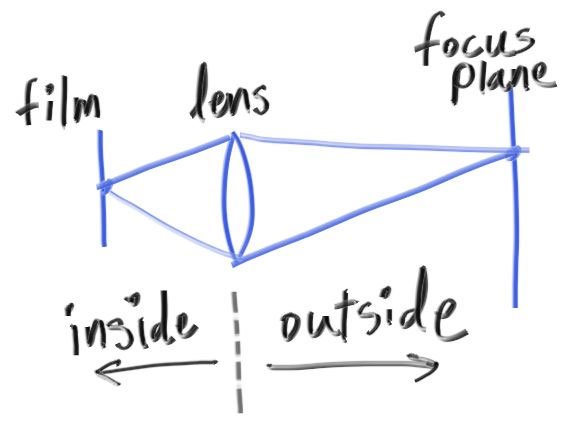 film
lens
focus
plane
inside
outside